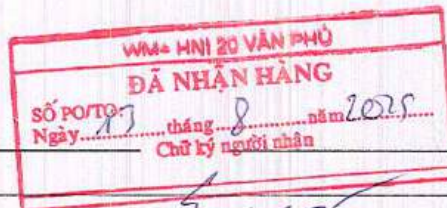 WM+ HNI 20 VĂN PHÚ
ĐÃ NHẬN HÀNG
SỐ PO/TO:
Ngày 13 tháng 8 năm 2025
Chữ ký người nhận